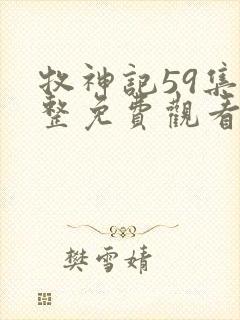 牧神記59集
整免費觀看
樊雪婧